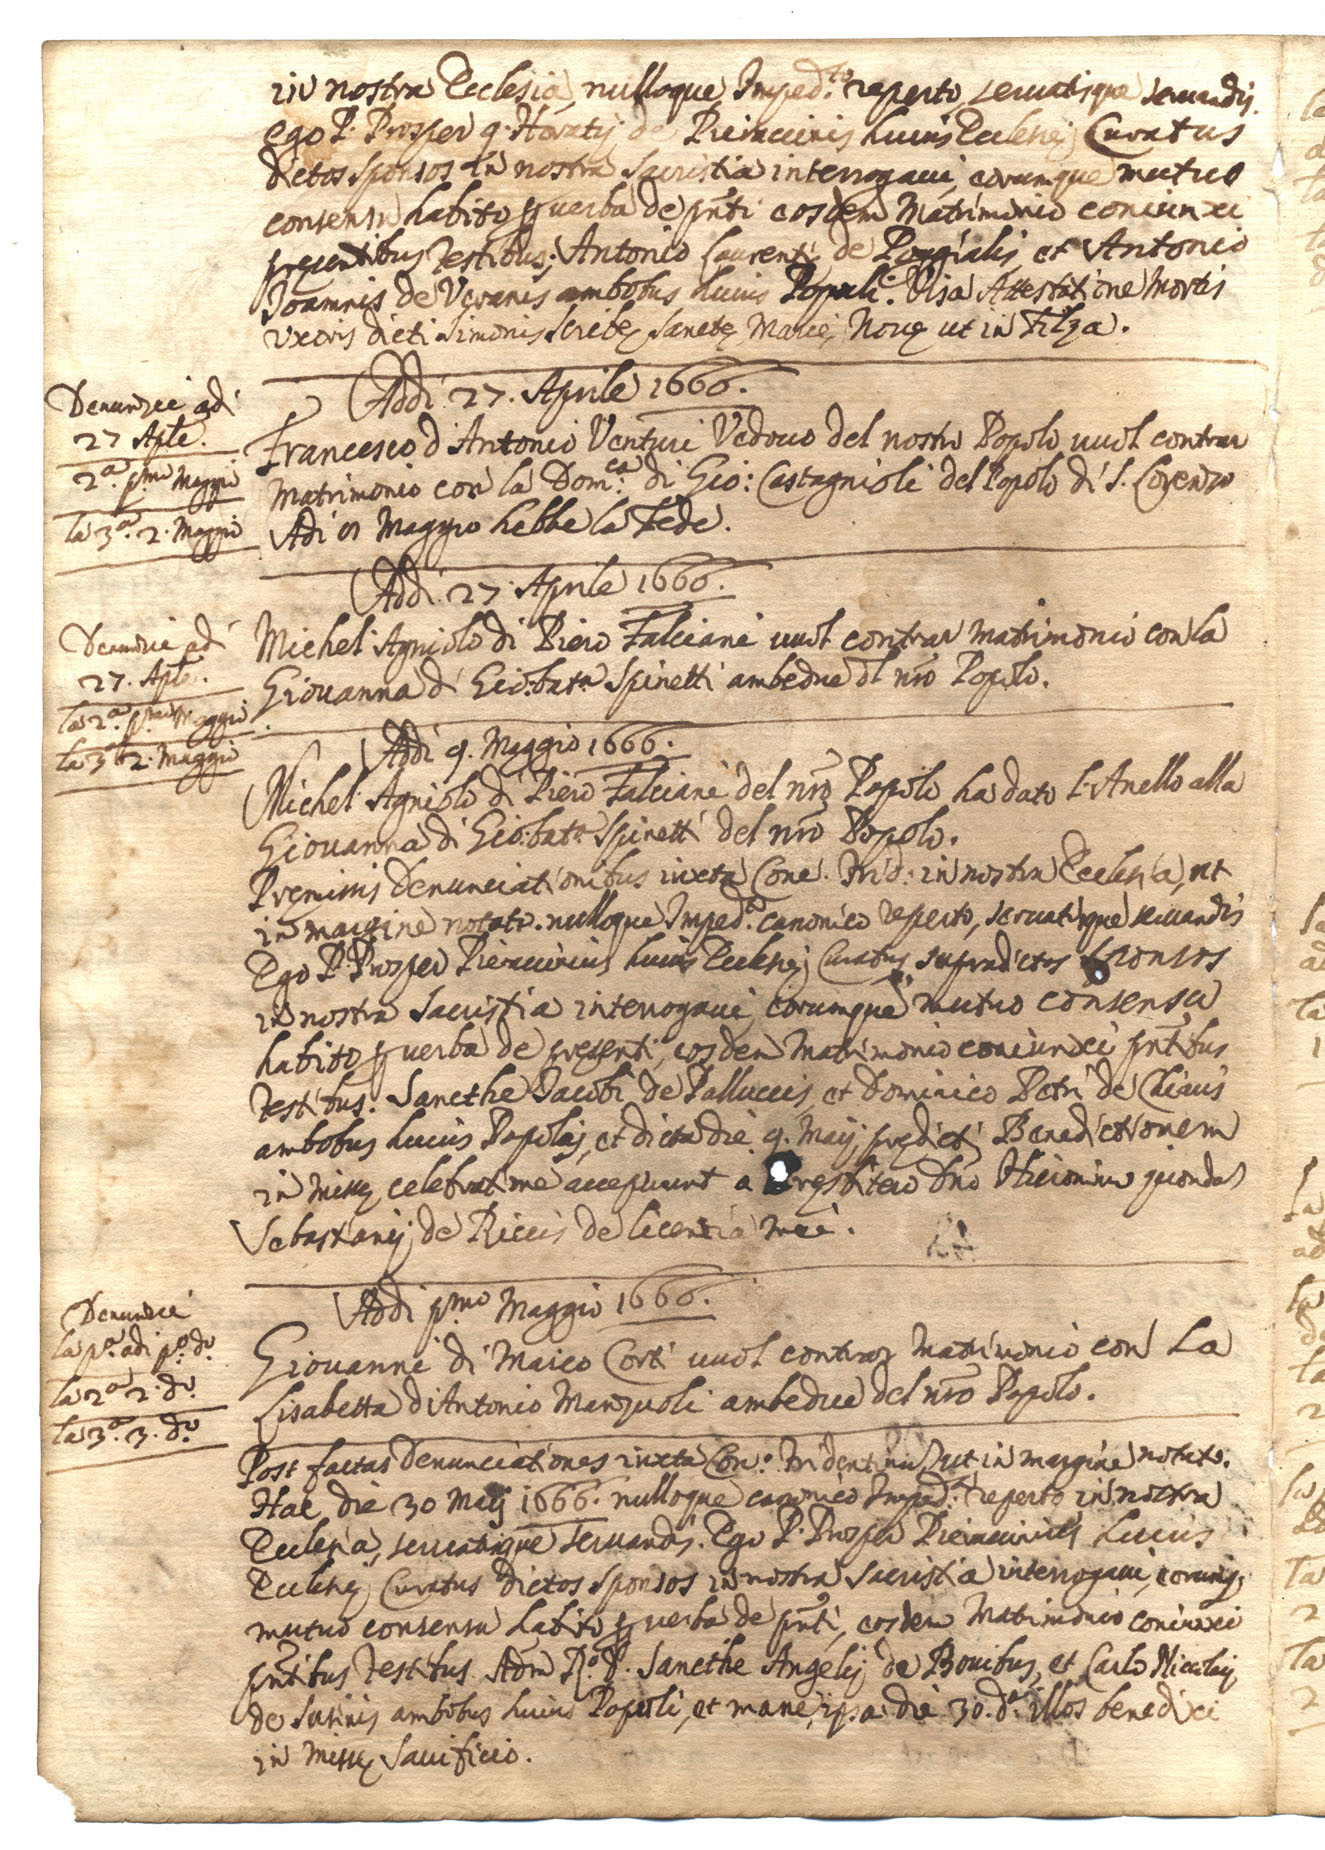 in nostra Ecclesia, nulloque Imped.to reperto, seruatisque seruandis.
Ego P. Prosper q. Horatij de Pieraccinis huius Ecclesię Curatus
dictos sponsos in nostra Sacristia interrogaui, eorumque mutuo
consensu habito ꝑ uerba de pñti eosdem Matrimonio coniunxi
pręsentibus Testibus; Antonio Laurentij de Poggialis et Antonio
Joannis de Veranis ambobus huius Populi. Visa Attestatione Mortis
uxoris dicti Simonis Scribę Sanctę Marię Nouę ut in Filza.
Addi 27. Aprile 1666.
Denunzie adi
27 Aple.
2.a pmo Maggio
la 3.a 2. Maggio
Francesco d'Antonio Venturi Vedouo del nostro Popolo uuol contrar
Matrimonio con la Dom.ca di Gio: Castagnioli del Popolo di S. Lorenzo
Adi Maggio hebbe la Fede.
Addi. 27. Aprile 1666.
Denunzie adi
27. Aple.
la 2.a pmo Maggio
la 3.a 2. Maggio
Michel Agniolo di Piero Falciani uuol contrar matrimonio con la
Giouanna di Gio:bat.a Spinetti ambedue dl nrõ Popolo.
Addi 9. Maggio 1666.
Michel Agniolo di Piero Falciani del nrõ Popolo ha dato l'Anello alla
Giouanna di Gio:bat.a Spinetti del nrõ Popolo.
Pręmissis Denunciationibus iuxta Conc. Trid: in nostra Ecclesia, ut
in margine notato. nulloque Imped.o canonico reperto, seruatisque seruandis
Ego P. Prosper Pieraccinius huius Ecclesię Curatus supradictos sponsos
in nostra Sacristia interrogaui, eorumque mutuo consensu
habito ꝑ uerba de pręsenti, eosdem Matrimonio coniunxi pñtibus
Testibus. Sancthe Jacobi de Palluccis, et Dominico Petri de Chiaris
ambobus huius Populi, et dicta die 9. Maij prędicti Benedictionem
in Missę celebratione acceperunt a Presbitero Dño Hieronimo quondam
Sebastianij de Riccis de licentia mei.
Addi pmo Maggio 1666.
Denunzie
la p.a adi p.o do
la 2.a 2. do
la 3.a 3. do
Giouanni di Marco Corti uuol contrar Matrimonio con La
Lisabetta d'Antonio Manzuoli ambedue del nrõ Popolo.
Post factas Denunciationes iuxta Con.o Tridentini, ut in margine notato.
Hac die 30 Maij 1666. nulloque canonico Imped.to reperto in nostra
Ecclesia, seruatisque seruandis. Ego P. Prosper Pieraccinius huius
Ecclesię Curatus dictos sponsos in nostra Sacristia interrogaui, eorumq;
mutuo consensu habito ꝑ uerba de pñti, eosdem Matrimonio coniunxi
pñtibus Testibus Adm R.do P. Sancthe Angelij de Bouibus, et Carlo Nicolaij
de Surinis ambobus huius Populi, et mane, ipsa die 30. d.a illos benedixi
in Missę Sacrificio.